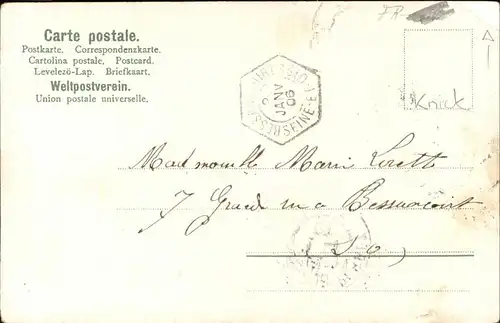 Carte postale.
Postkarte. Correspondenzkarte.
Cartolina postale. Postcard.
Levelező-Lap. Briefkaart.
Weltpostverein.
Union postale universelle.
FR-
Knick
JANV
06
Mademoiselle Marie
7 Grande rue à Bessancourt
(S. O)